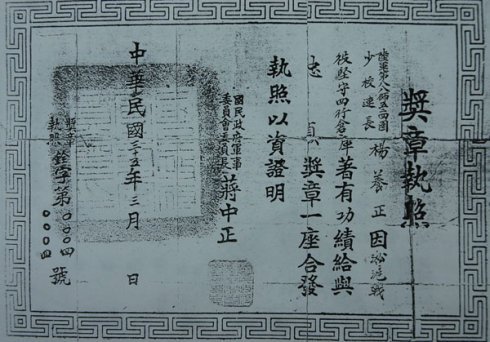 獎章執照
陸軍第八師五二四團
少校連長
楊養正因淞滬戰
役堅守四行倉庫著有功績給與
忠貞獎章一座合發
執照以資證明
國民政府軍事
委員會委員長
蔣中正
中華民國三十五年三月 日
獎章
執照
銓字第
〇〇〇四
〇〇〇四
號